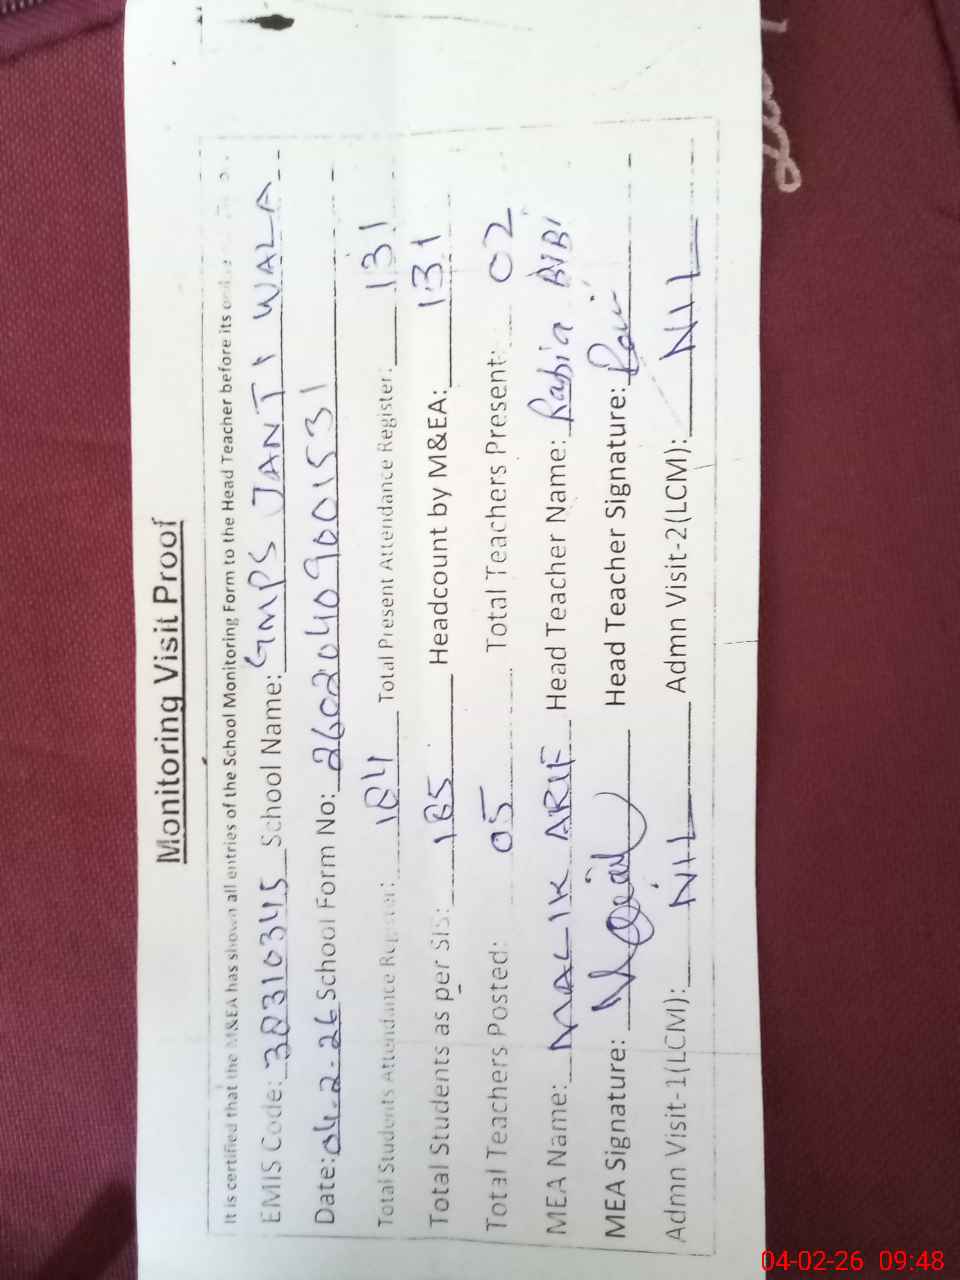 Monitoring Visit Proof
It is certified that the M&EA has shown all entries of the School Monitoring Form to the Head Teacher before its
EMIS Code: 38310345 School Name: GMPS JANTI WALA
Date: 04-2-26 School Form No: 26020409001531
Total Students Attendance Register: 184 Total Present Attendance Register: 131
Total Students as per SIS: 185 Headcount by M&EA: 131
Total Teachers Posted: 05 Total Teachers Present: 02
MEA Name: MALIK ARIF Head Teacher Name: Rabia BIBI
MEA Signature: Head Teacher Signature:
Admn Visit-1(LCM): NIL Admn Visit-2(LCM): NIL
04-02-26 09:48